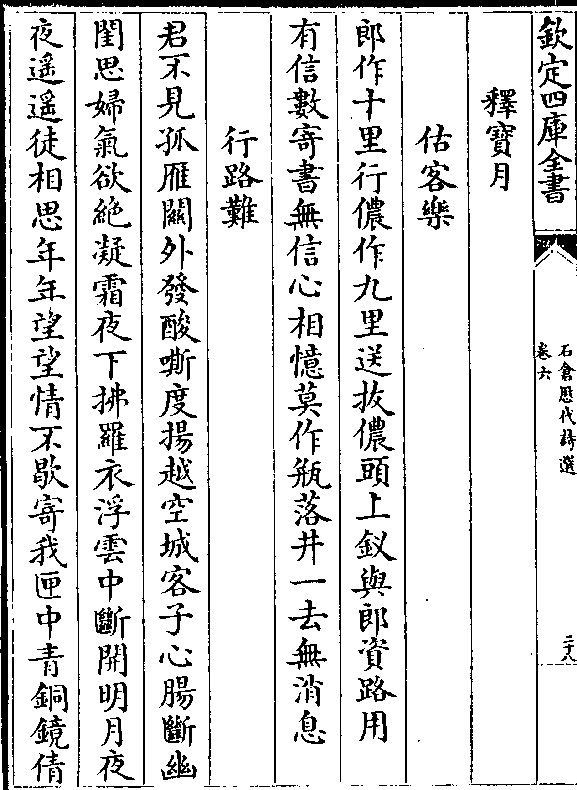 欽定四庫全書
石倉歷代詩選
卷六
二十八
釋寶月
估客樂
郎作十里行儂作九里送拔儂頭上釵與郎資路用
有信數寄書無信心相憶莫作瓶落井一去無消息
行路難
君不見孤雁關外發酸嘶度揚越空城客子心腸斷幽
閨思婦氣欲絶凝霜夜下拂羅衣浮雲中斷開明月夜
夜遥遥徒相思年年望望情不歇寄我匣中青銅鏡倩